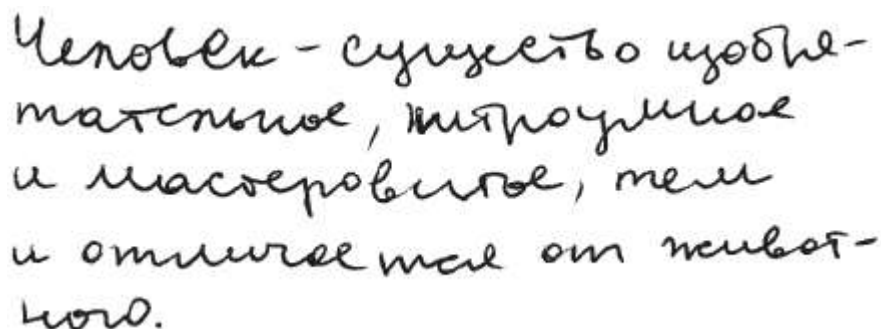 Человек - существо изобре-
тательное, хитроумное
и мастеровитое, тем
и отличается от живот-
ного.